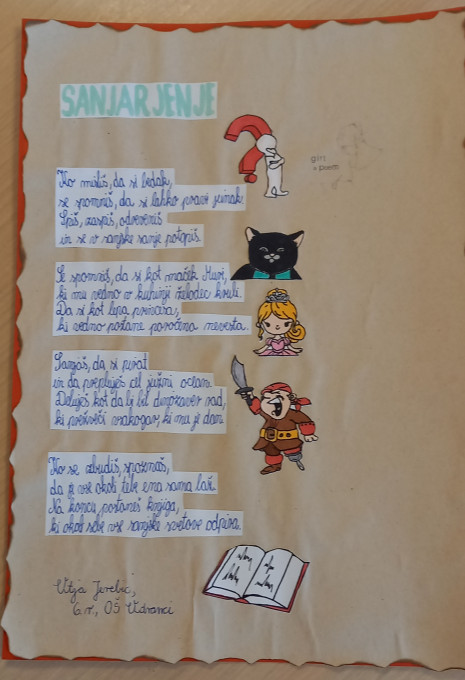 SANJARJENJE
Ko misliš, da si bedak,
se spomniš, da si lahko pravi junak.
Spiš, zaspiš, odreveniš
in se v sanjske sanje potopiš.
Se spomniš, da si kot maček Muri,
ki mu vedno v kuhinji želodec kruli.
Da si kot lepa princesa,
ki vedno postane poročna nevesta.
Sanjaš, da si pirat
in da prepluješ cel južni ocean.
Deluješ kot da bi bil dinozaver rad,
ki prežveči vsakogar, ki mu je dan.
Ko se zbudiš, spoznaš,
da je vse okoli tebe ena sama laž.
Na koncu postaneš knjiga,
ki okoli sebe vse sanjske svetove odpira.
Vitja Jerebic,
6. r., OŠ Odranci
girl